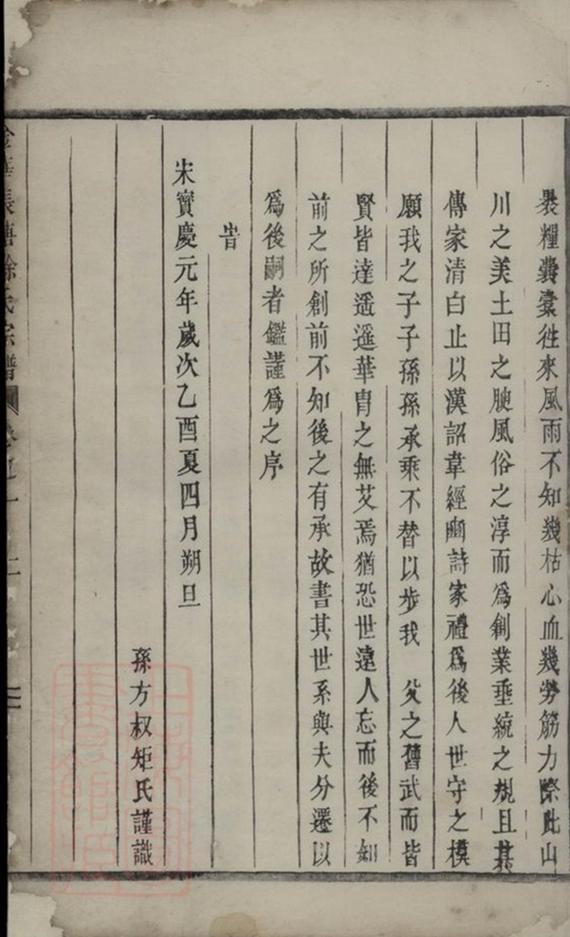 褁糧囊槖徃來風雨不知幾枯心血幾勞筋力際此山
川之美土田之腴風俗之淳而爲創業垂統之規且其
傳家清白止以漢詔韋經豳詩家禮爲後人世守之模
願我之子子孫孫承乘不替以步我　父之舊武而皆
賢皆達遥遥華胄之無艾焉猶恐世遠人忘而後不知
前之所創前不知後之有承故書其世系與夫分遷以
爲後嗣者鑑謹爲之序
旹
宋寶慶元年歲次乙酉夏四月朔旦
孫方权矩氏謹識
徐氏宗譜